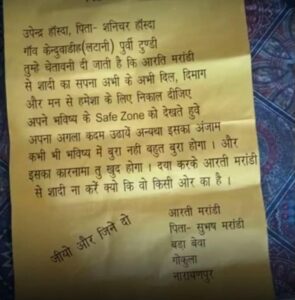 उपेन्द्र हाँस्दा, पिता- शनिचर हाँस्दा
गाँव केन्दुवाडीह(लटानी) पुर्वी टुण्डी
तुम्हे चेतावनी दी जाती है कि आरति मरांडी
से शादी का सपना अभी के अभी दिल, दिमाग
और मन से हमेशा के लिए निकाल दीजिए
अपने भविष्य के Safe Zone को देखते हुवे
अपना अगला कदम उठायें अन्यथा इसका अंजाम
कभी भी भविष्य में बुरा नही बहुत बुरा होगा । और
इसका कारनामा तु खुद होगा । दया करके आरती मरांडी
से शादी ना करें क्यो कि वो किसी ओर का है ।
जीयो और जिने दो
आरती मरांडी
पिता- सुभष मरांडी
बडा बेवा
गोकुला
नारायणपुर